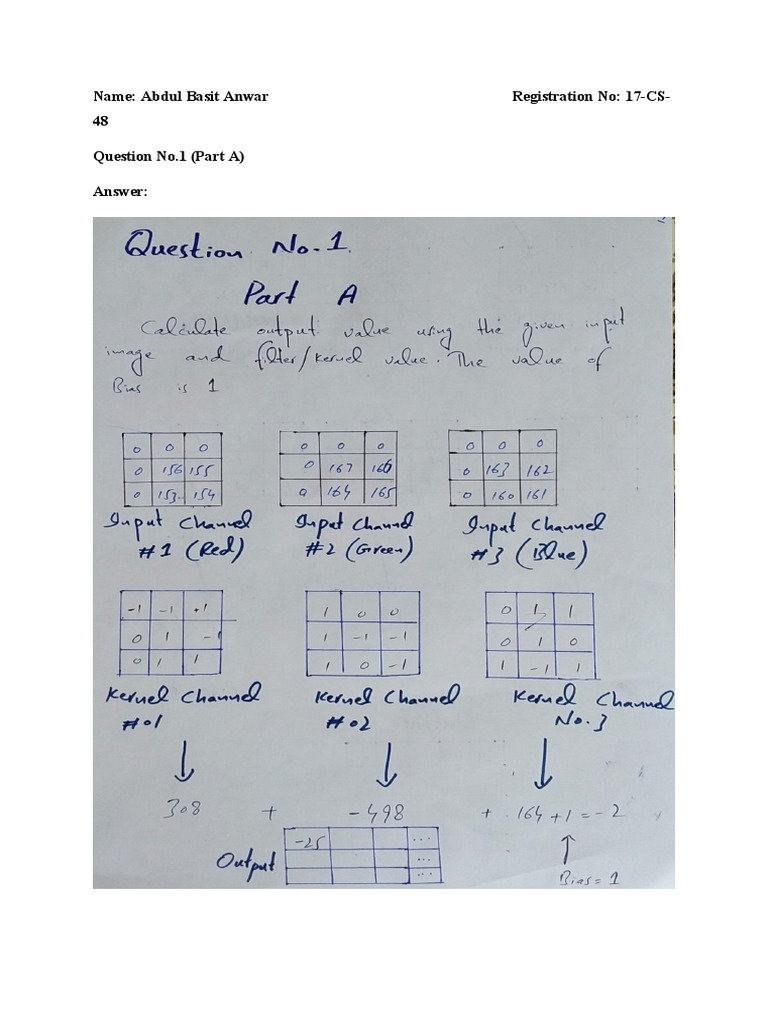 Name: Abdul Basit Anwar Registration No: 17-CS-
48
Question No.1 (Part A)
Answer:
Question No.1.
Part A
Calculate output value using the given input
image and filter/kernel value. The value of
Bias is 1
0 0 0 0 0 0 0 0 0
0 156 155 0 167 166 0 163 162
0 153 154 0 164 165 0 160 161
Input Channel Input Channel Input Channel
#1 (Red) #2 (Green) #3 (Blue)
-1 -1 +1 1 0 0 0 1 1
0 1 -1 1 -1 -1 0 1 0
0 1 1 1 0 -1 1 -1 1
Kernel Channel Kernel Channel Kernel Channel
#01 #02 No.3
308 + -498 + 164 + 1 = -2
-25 ...
Output ...
...
Bias = 1